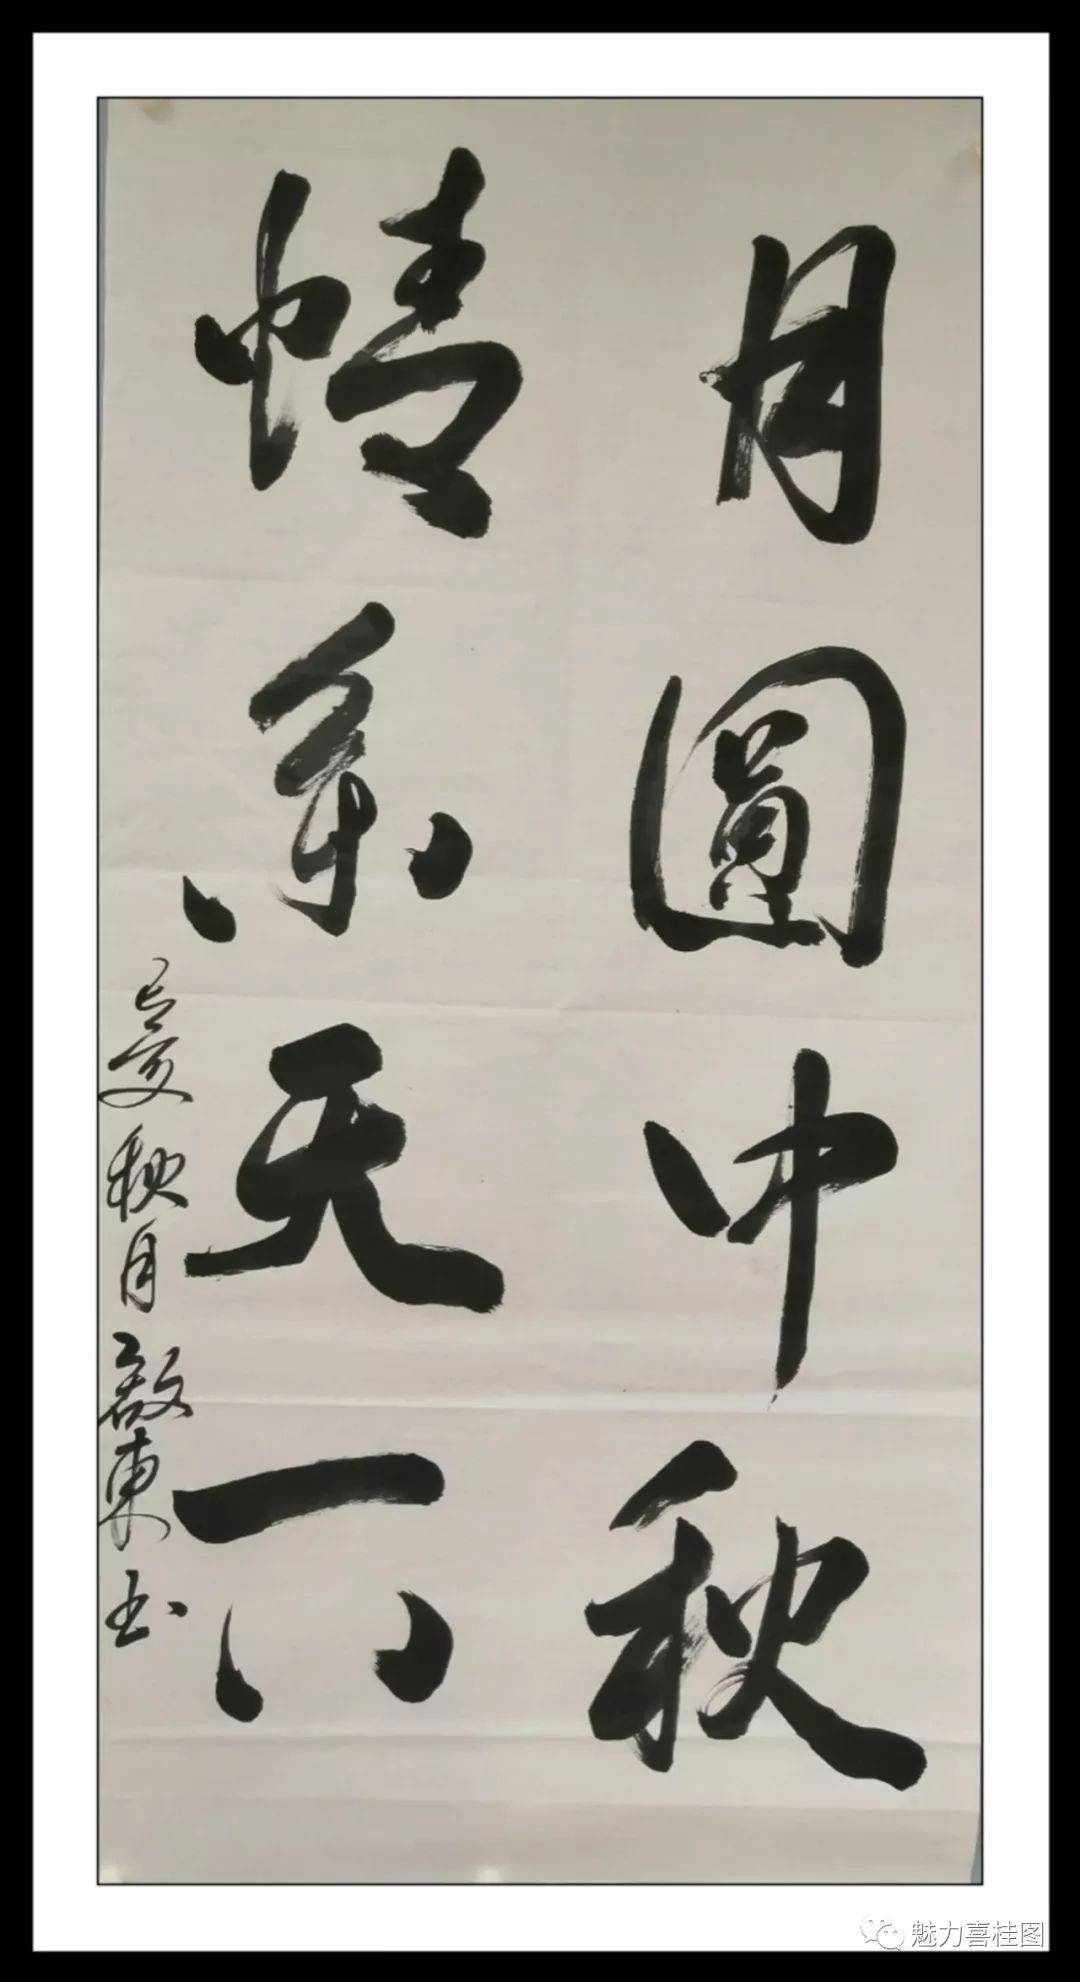 月圓中秋
情系天下
己亥秋月東书
魅力喜桂图